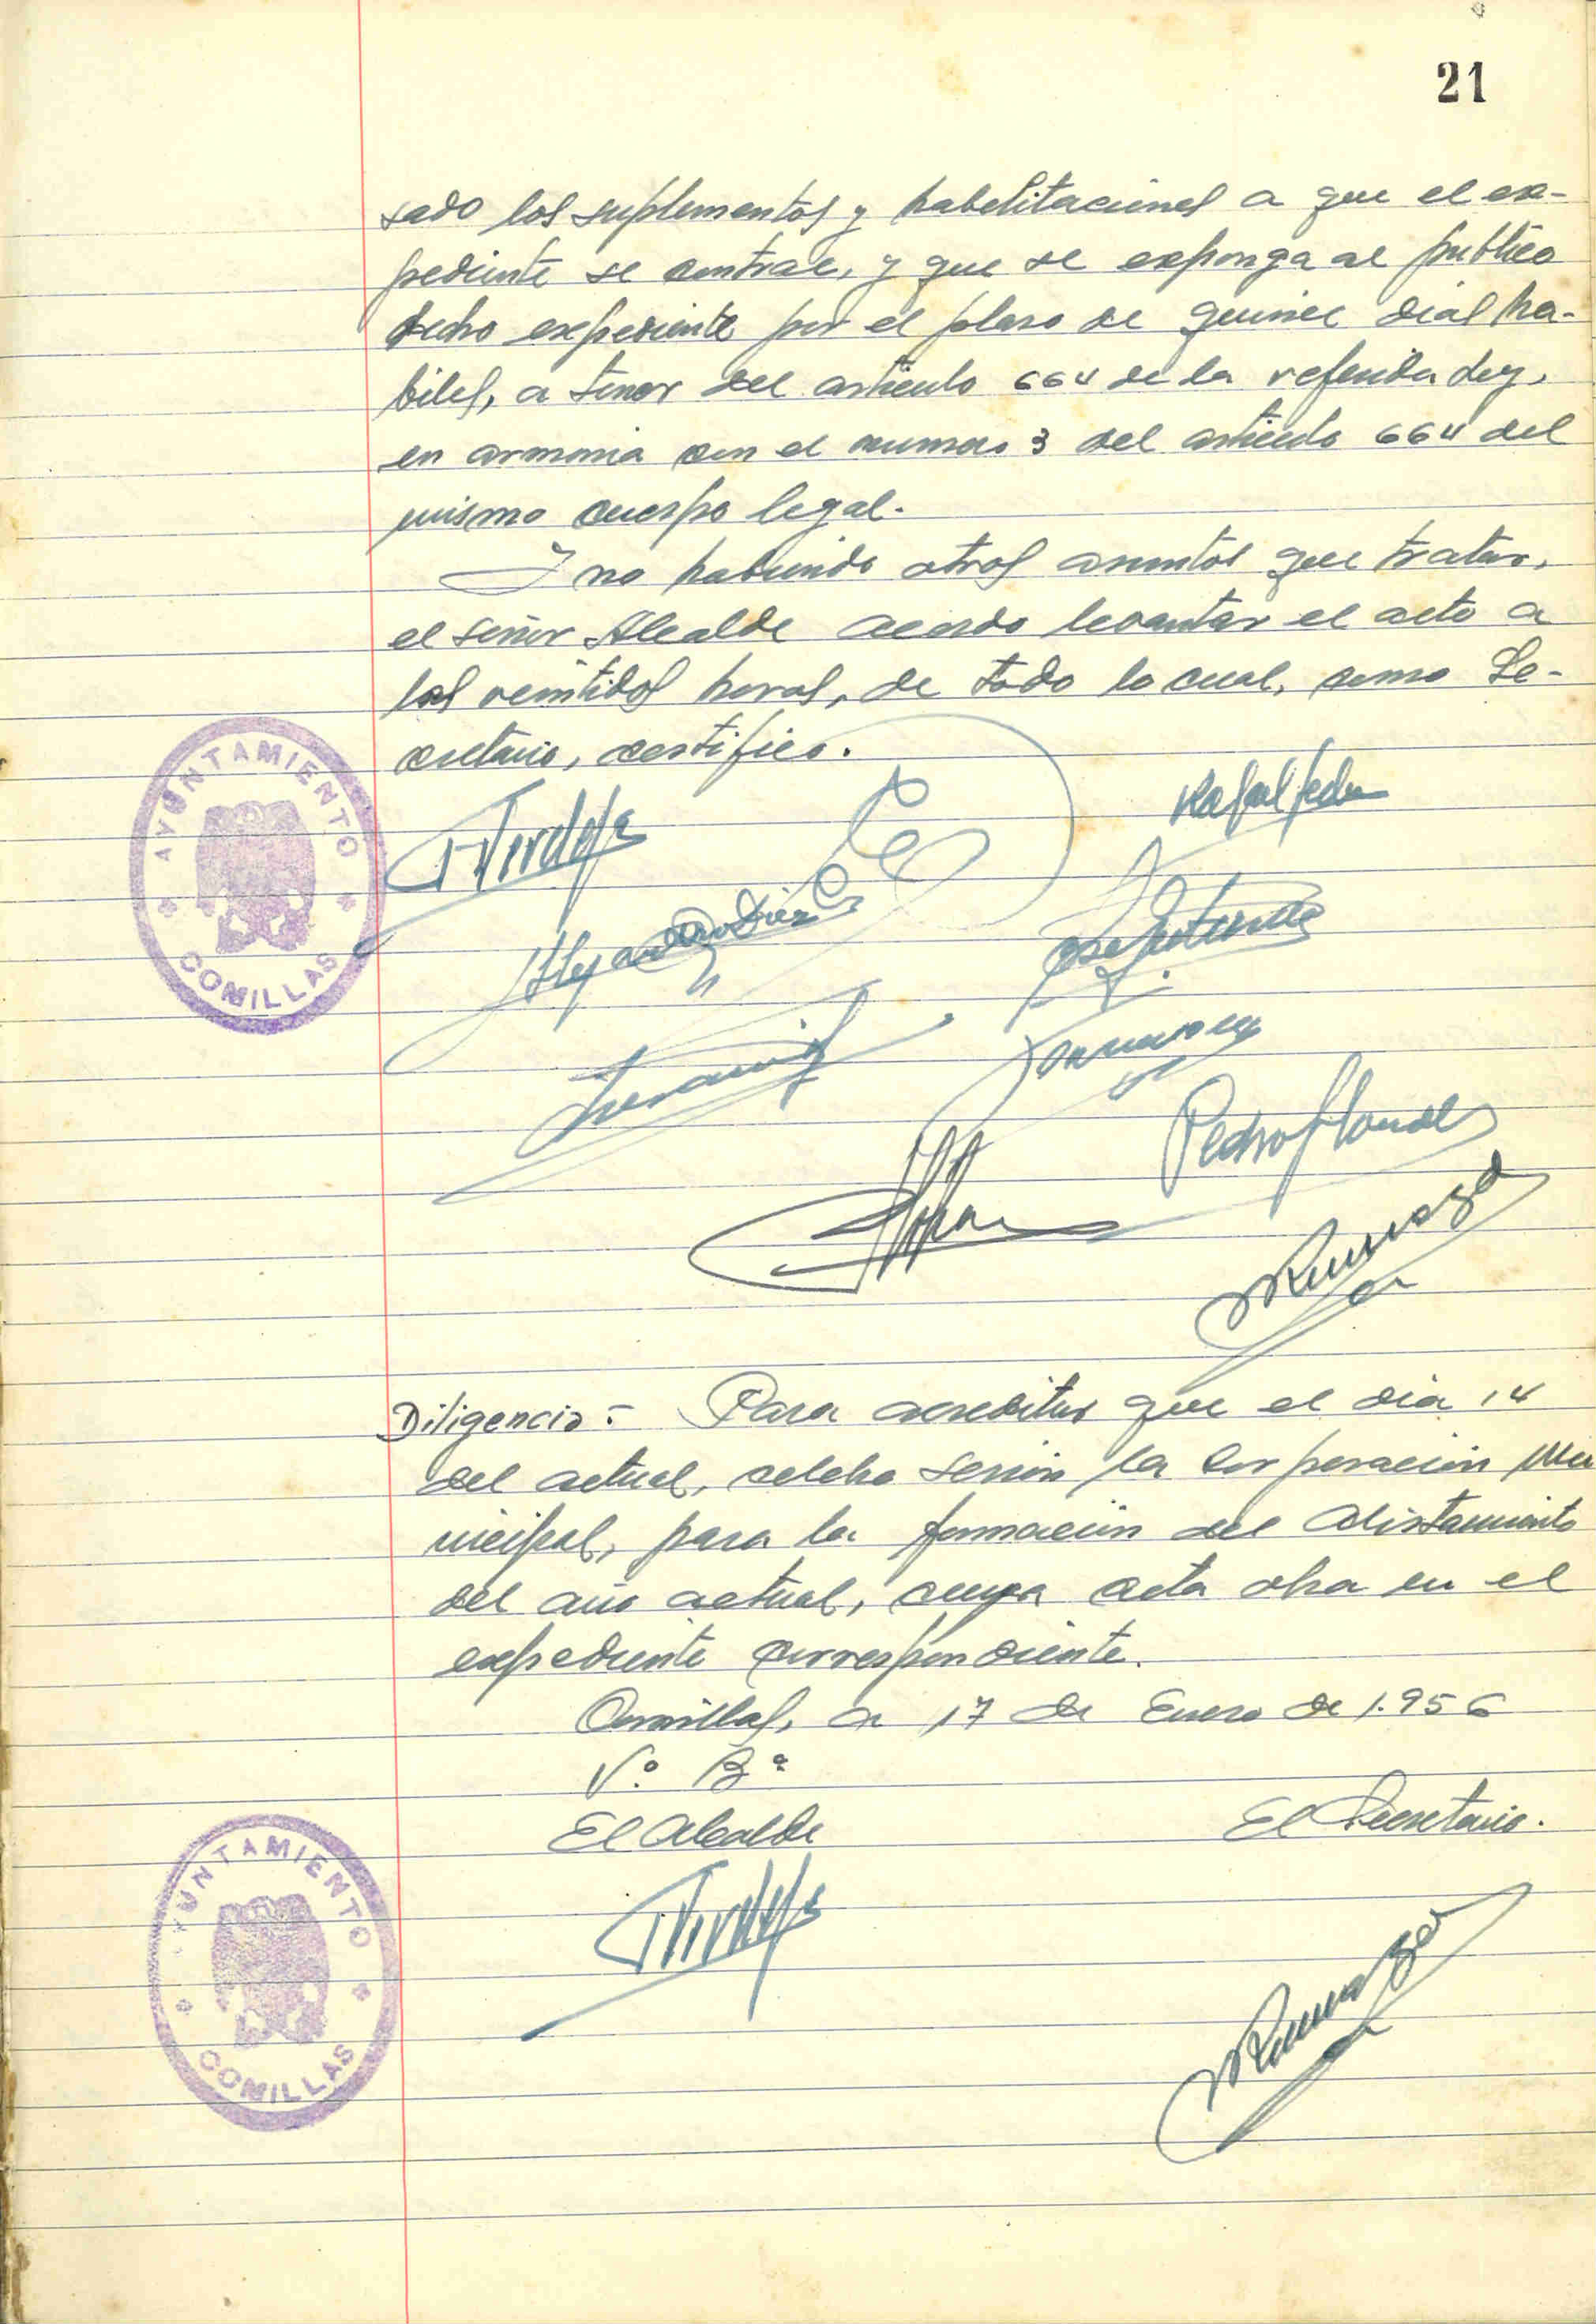 21
sado los suplementos y habilitaciones a que el ex-
pediente se contrae, y que se exponga al publico
dicho expediente por el plazo de quince dias ha-
biles, a tenor del articulo 664 de la referida Ley,
en armonia con el numero 3 del articulo 664 del
mismo cuerpo legal.
Y no habiendo otros asuntos que tratar,
el señor Alcalde acordo levantar el acto a
las veintidos horas, de todo lo cual, como Se-
cretario, certifico.
AYUNTAMIENTO
COMILLAS
Alejandro Diez
Pedro
Diligencia:- Para acreditar que el dia 14
del actual, celebro sesión la Corporación Mu
nicipal, para la formación del Alistamiento
del año actual, cuya acta obra en el
expediente correspondiente.
Comillas, a 17 de Enero de 1.956
Vº Bº
El Alcalde
El Secretario.
AYUNTAMIENTO
COMILLAS